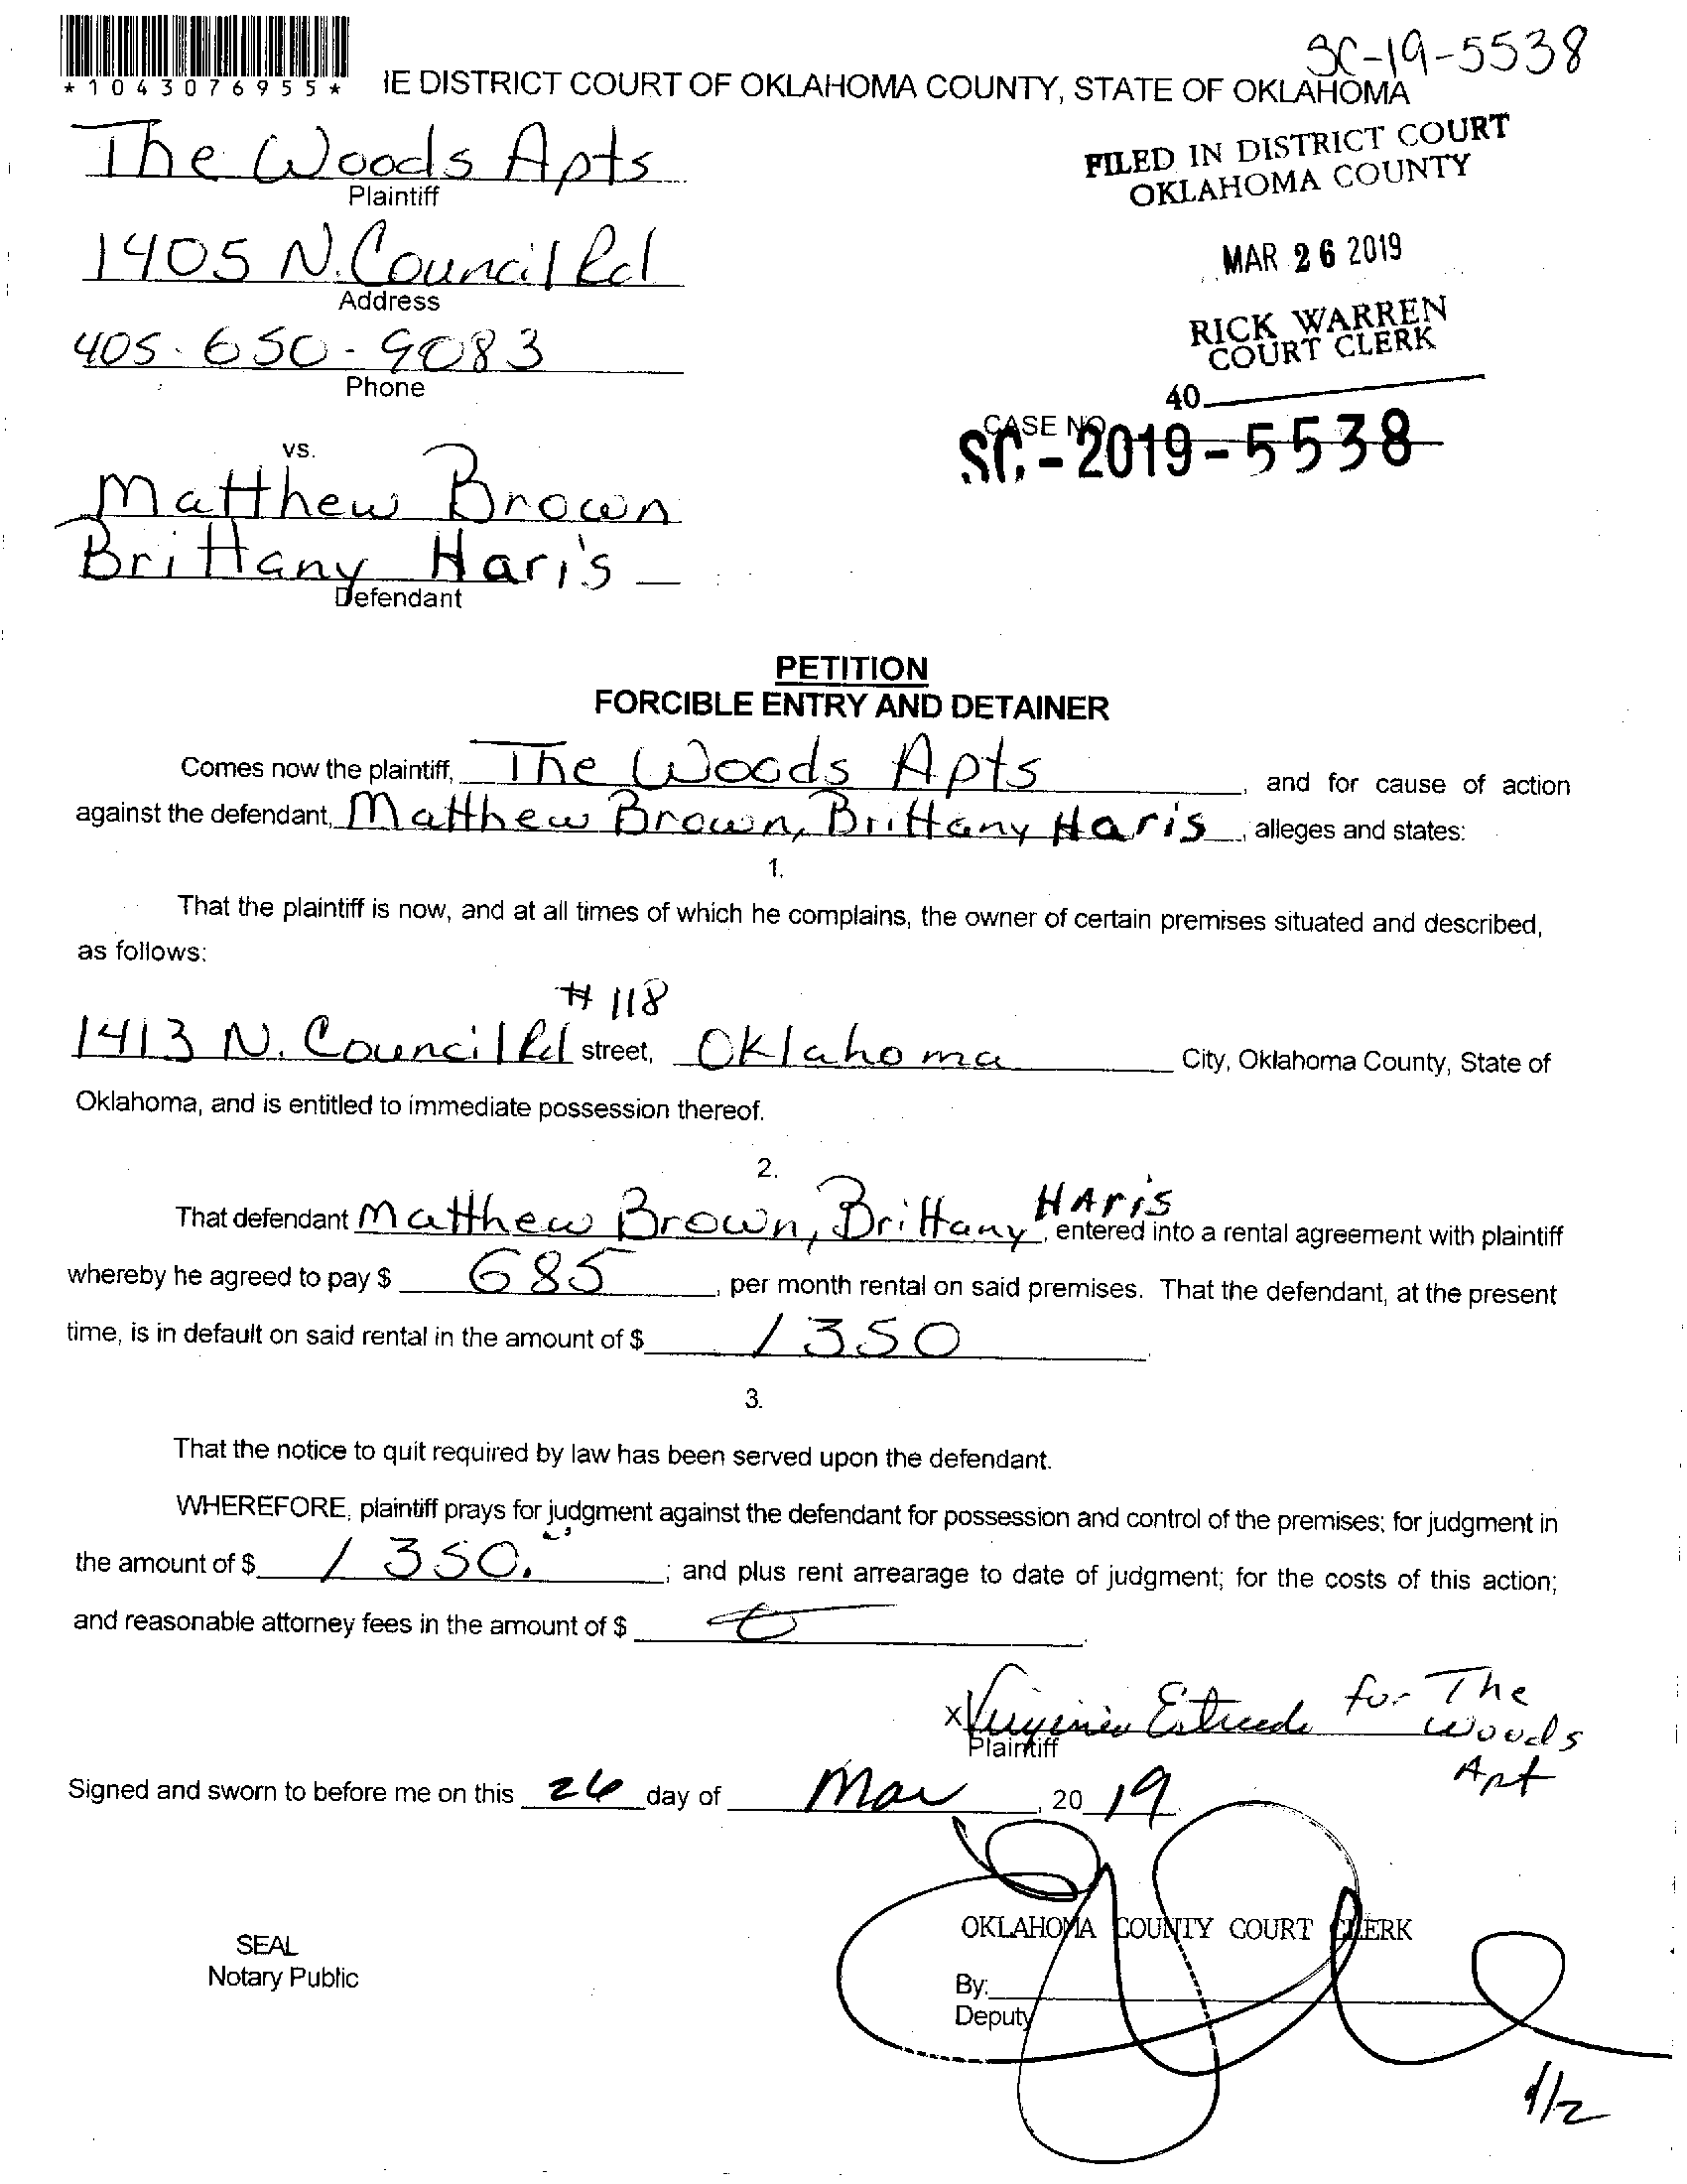 SC-19-5538
*1043076955*
IE DISTRICT COURT OF OKLAHOMA COUNTY, STATE OF OKLAHOMA
The Woods Apts
Plaintiff
FILED IN DISTRICT COURT
OKLAHOMA COUNTY
1405 N. Council Rd
Address
MAR 26 2019
405-650-9083
Phone
RICK WARREN
COURT CLERK
40
CASE NO.
SC-2019-5538
vs.
Matthew Brown
Brittany Haris
Defendant
PETITION
FORCIBLE ENTRY AND DETAINER
Comes now the plaintiff, The Woods Apts, and for cause of action
against the defendant, Matthew Brown, Brittany Haris, alleges and states:
1.
That the plaintiff is now, and at all times of which he complains, the owner of certain premises situated and described,
as follows:
#118
1413 N. Council Rd street, Oklahoma City, Oklahoma County, State of
Oklahoma, and is entitled to immediate possession thereof.
2.
That defendant Matthew Brown, Brittany HAris, entered into a rental agreement with plaintiff
whereby he agreed to pay $ 685, per month rental on said premises. That the defendant, at the present
time, is in default on said rental in the amount of $ 1350.
3.
That the notice to quit required by law has been served upon the defendant.
WHEREFORE, plaintiff prays for judgment against the defendant for possession and control of the premises; for judgment in
the amount of $ 1350.; and plus rent arrearage to date of judgment; for the costs of this action;
and reasonable attorney fees in the amount of $ 0.
x Virginia Estrada for The
Woods
Apt
Plaintiff
Signed and sworn to before me on this 26 day of Mar, 2019.
OKLAHOMA COUNTY COURT CLERK
SEAL
Notary Public
By:
Deputy
1/2